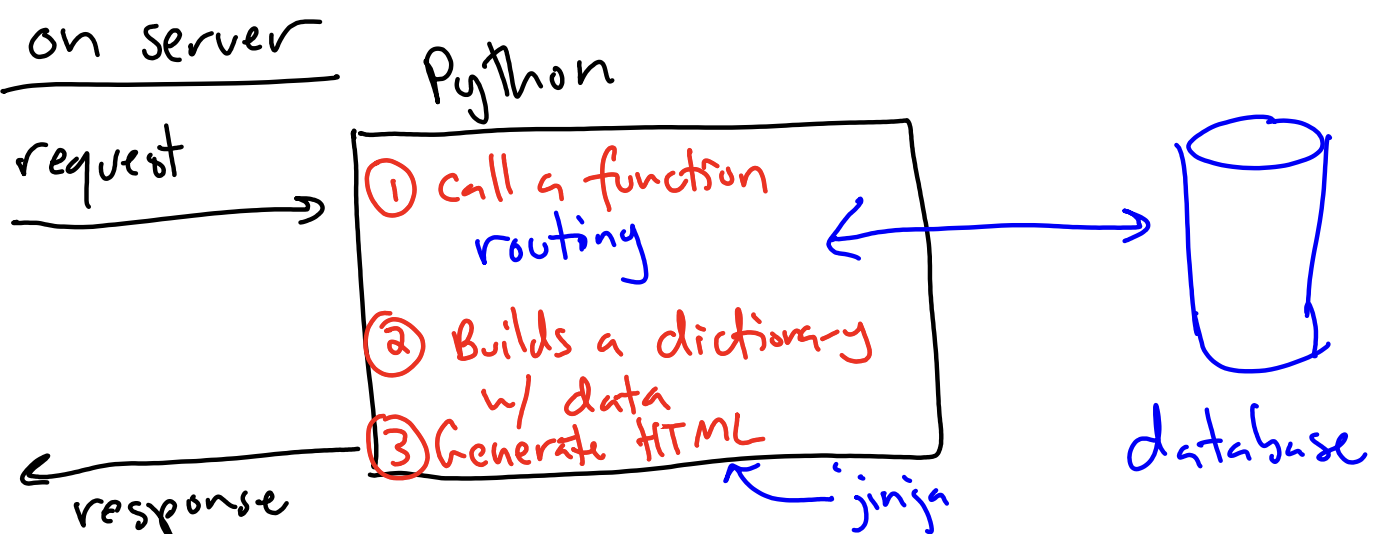 on server
Python
request
① call a function
routing
② Builds a dictionary
w/ data
③ Generate HTML
database
response
jinja